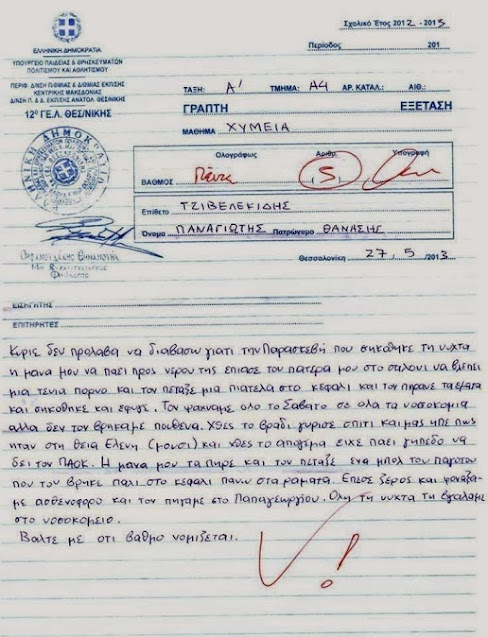 Σχολικό Έτος 2012 - 2013
ΕΛΛΗΝΙΚΗ ΔΗΜΟΚΡΑΤΙΑ
ΥΠΟΥΡΓΕΙΟ ΠΑΙΔΕΙΑΣ & ΘΡΗΣΚΕΥΜΑΤΩΝ
ΠΟΛΙΤΙΣΜΟΥ ΚΑΙ ΑΘΛΗΤΙΣΜΟΥ
Περίοδος 201
ΠΕΡΙΦ. Δ/ΝΣΗ Π/ΘΜΙΑΣ & Δ/ΘΜΙΑΣ ΕΚΠ/ΣΗΣ
ΚΕΝΤΡΙΚΗΣ ΜΑΚΕΔΟΝΙΑΣ
Δ/ΝΣΗ Π. & Δ. ΕΚΠ/ΣΗΣ ΑΝΑΤΟΛ. ΘΕΣ/ΝΙΚΗΣ
12º ΓΕ.Λ. ΘΕΣ/ΝΙΚΗΣ
ΤΑΞΗ: Α' ΤΜΗΜΑ: Α4 ΑΡ. ΚΑΤΑΛ.: ΑΙΘ.:
ΓΡΑΠΤΗ ΕΞΕΤΑΣΗ
ΜΑΘΗΜΑ ΧΥΜΕΙΑ
Ολογράφως Αριθμ. Υπογραφή
ΒΑΘΜΟΣ Πέντε (5)
Επίθετο ΤΖΙΒΕΛΕΚΙΔΗΣ
Όνομα ΠΑΝΑΓΙΩΤΗΣ Πατρώνυμο ΘΑΝΑΣΗΣ
Θεσσαλονίκη 27, 5 /2013
ΕΙΣΗΓΗΤΗΣ
ΕΠΙΤΗΡΗΤΕΣ
Κυρις δεν προλαβα να διαβασω γιατι την Παρασκεβή που σικόθηκε τη νυχτα
η μανα μου να παει προς νερου της επιασε τον πατερα μου στο σαλονι να βλεπει
μια τενια πορνο και τον πεταξε μια πιατελα στο κεφαλι και τον πηρανε τα εματα
και σηκοθηκε και εφυγε. Τον ψαχναμε ολο το Σαβατο σε ολα τα νοσοκομια
αλλα δεν τον βρηκαμε πουθενα. Χθες το βραδι γυρισε σπιτι και μας ηπε πως
ηταν στη θεια Ελενη (μουσι) και χθες το απογεμα ειχε παει γηπεδο να
δει τον ΠΑΟΚ. Η μανα μου τα πηρε και τον πεταξε ενα μπολ του παγοτου
που τον βρηκε παλι στο κεφαλι πανω στα ραματα. Επεσε ξερος και φοναξα-
με ασθενοφορο και τον πηγαμε στο Παπαγεωργιου. Ολη τη νυχτα τη βγαλαμε
στο νοσοκομειο.
Βαλτε με οτι βαθμο νομιζεται.